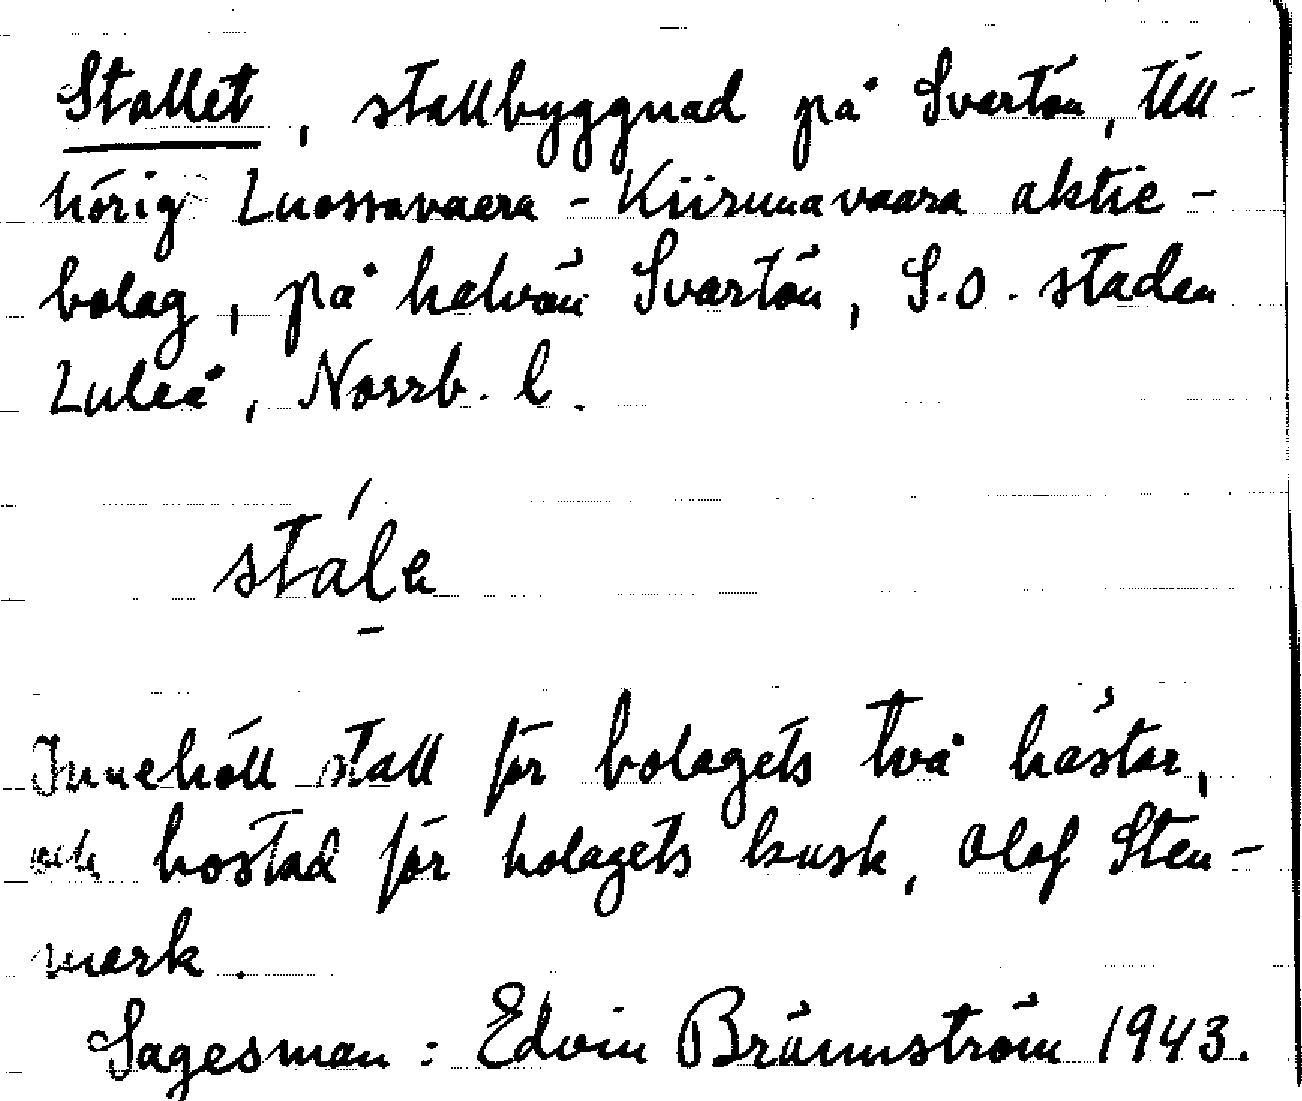 Stallet, stallbyggnad på Svartön, till-
hörig Luossavaara - Kiirunavaara aktie-
bolag, på halvön Svartön, S.O. staden
Luleå, Norrb. l.
stála
Innehöll stall för bolagets två hästar,
och bostad för bolagets kusk, Olof Sten-
mark.
Sagesman: Edvin Brännström 1943.